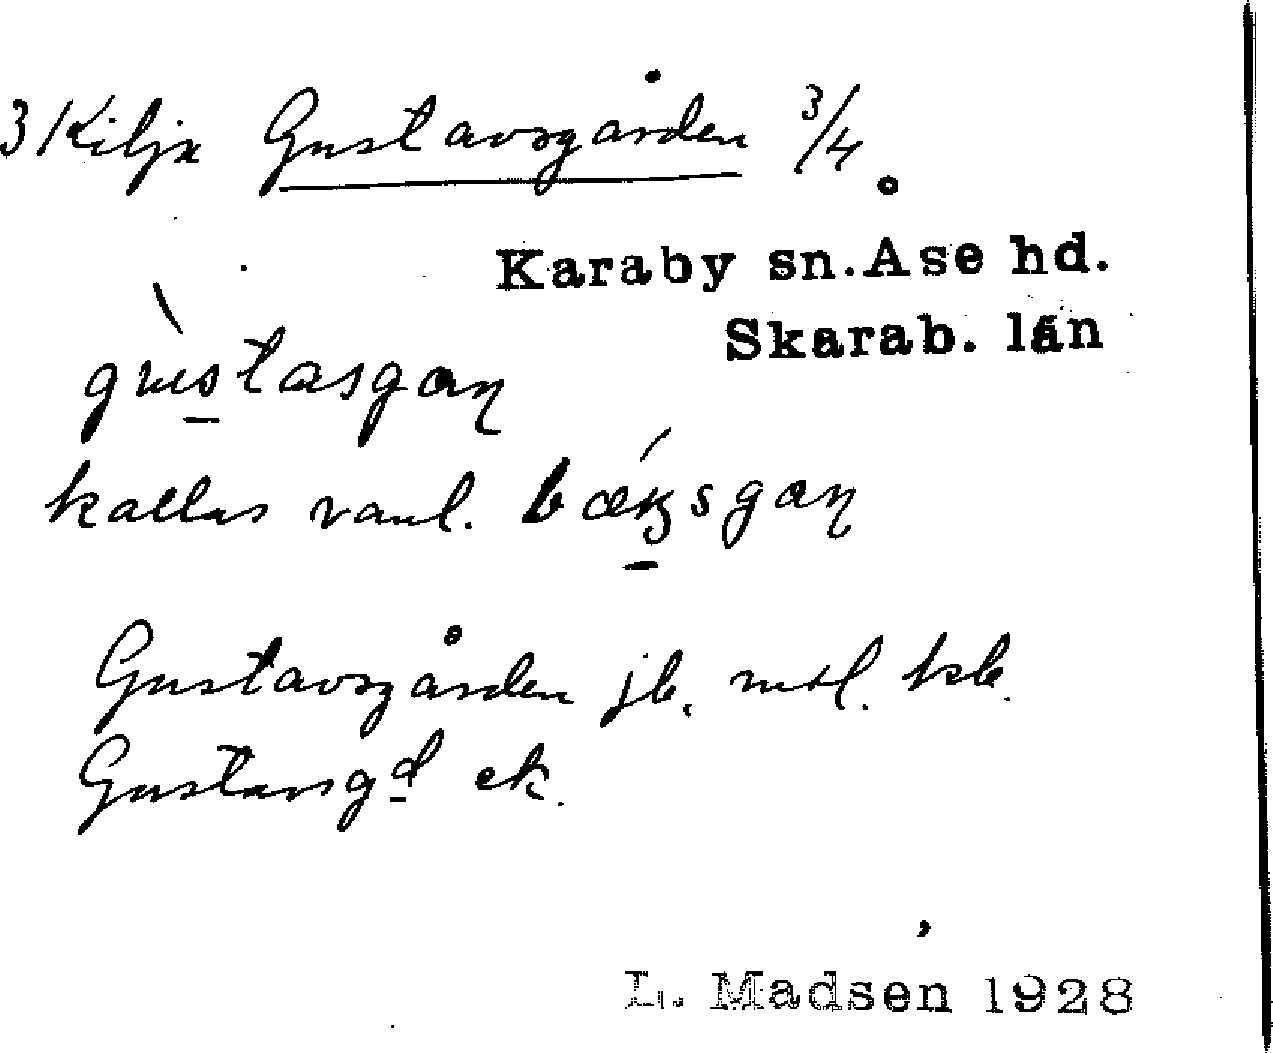 3 Kilja Gustavsgården 3/4
Karaby sn. Åse hd.
Skarab. län
gustasgaɳ
kallas vanl. bæksgaɳ
Gustavsgården jb. mtl. kb.
Gustavsgd ek.
L. Madsen 1928